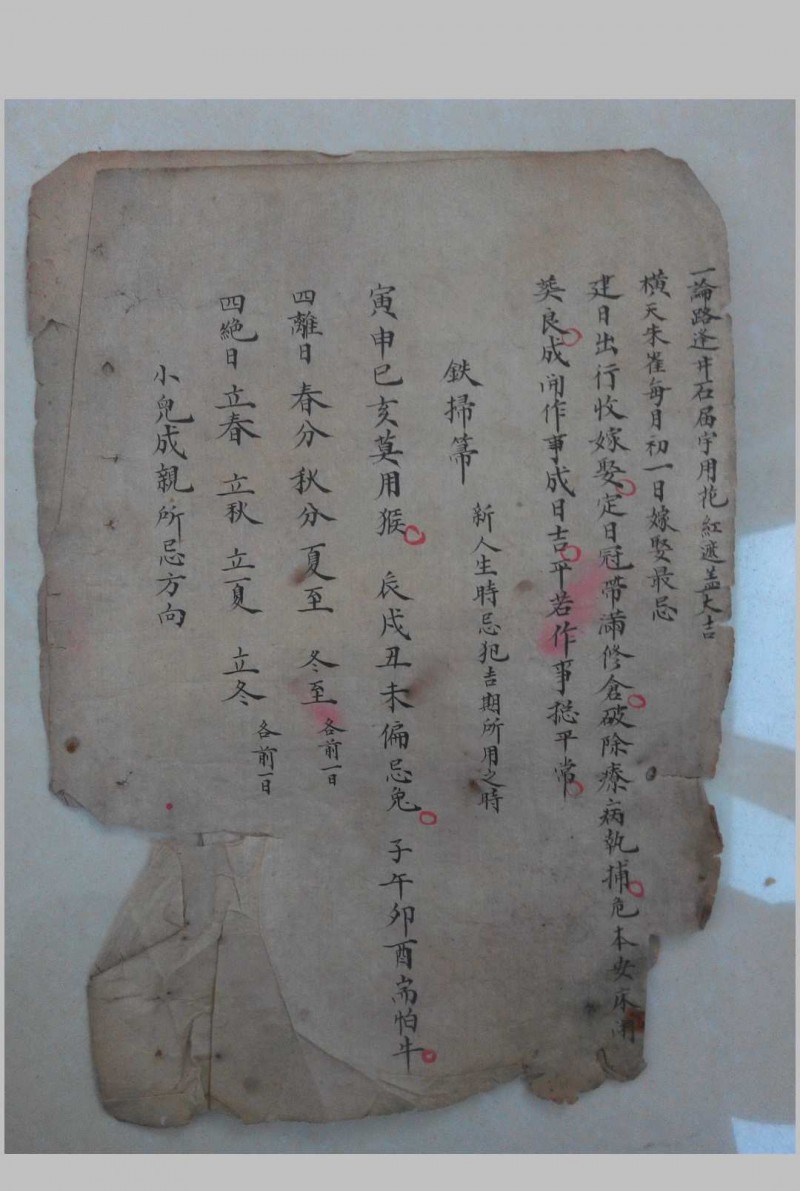 一論路逢井石届宇用袍紅遮盖大吉
橫天朱雀每月初一日嫁娶最忌
建日出行收嫁娶定日冠帶滿修倉破除療病執捕危本安床閉
葬良成開作事成日吉平若作事搃平常
鉄掃箒 新人生時忌犯吉期所用之時
寅申巳亥莫用猴 辰戌丑未偏忌兔 子午卯酉耑怕牛
四離日 春分 秋分 夏至 冬至 各前一日
四絕日 立春 立秋 立夏 立冬 各前一日
小兒成親所忌方向